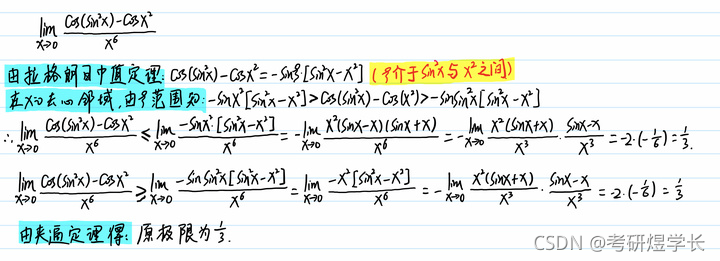 lim x→0 (cos(sin²x)-cosx²)/x⁶
由拉格朗日中值定理: cos(sin²x)-cosx²=-sinξ·[sin²x-x²] (ξ介于sin²x与x²之间)
在x=0去心邻域,由ξ范围知: -sinx²[sin²x-x²]>cos(sin²x)-cos(x²)>-sinsin²x[sin²x-x²]
∴ lim x→0 (cos(sin²x)-cosx²)/x⁶ ≤ lim x→0 (-sinx²·[sin²x-x²])/x⁶ = -lim x→0 (x²(sinx-x)(sinx+x))/x⁶ = -lim x→0 (x²(sinx+x))/x³ · (sinx-x)/x³ = -2·(-1/6)=1/3.
lim x→0 (cos(sin²x)-cosx²)/x⁶ ≥ lim x→0 (-sinsin²x[sin²x-x²])/x⁶ = lim x→0 (-x²[sin²x-x²])/x⁶ = -lim x→0 (x²(sinx+x))/x³ · (sinx-x)/x³ = -2·(-1/6)=1/3
由夹逼定理得: 原极限为1/3.
CSDN @考研煜学长